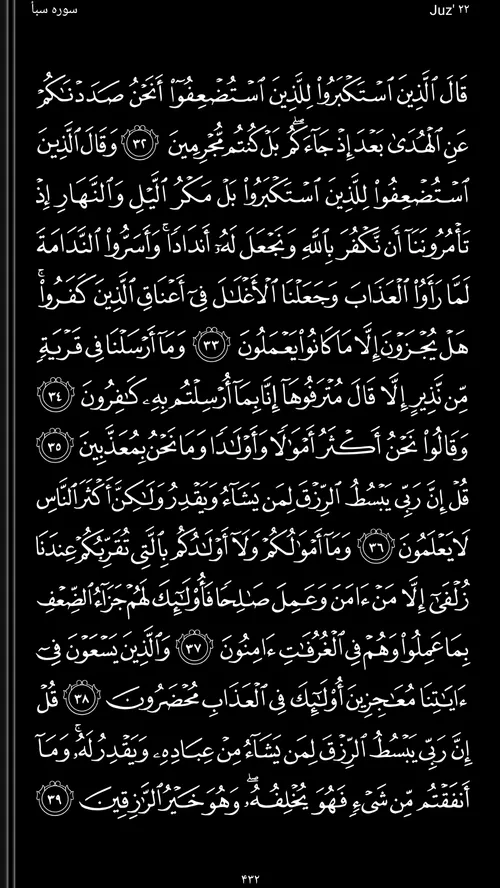 سوره سبأ
Juz' ۲۲
قَالَ ٱلَّذِينَ ٱسۡتَكۡبَرُواْ لِلَّذِينَ ٱسۡتُضۡعِفُوٓاْ أَنَحۡنُ صَدَدۡنَٰكُمۡ
عَنِ ٱلۡهُدَىٰ بَعۡدَ إِذۡ جَآءَكُمۖ بَلۡ كُنتُم مُّجۡرِمِينَ ٣٢ وَقَالَ ٱلَّذِينَ
ٱسۡتُضۡعِفُواْ لِلَّذِينَ ٱسۡتَكۡبَرُواْ بَلۡ مَكۡرُ ٱلَّيۡلِ وَٱلنَّهَارِ إِذۡ
تَأۡمُرُونَنَآ أَن نَّكۡفُرَ بِٱللَّهِ وَنَجۡعَلَ لَهُۥٓ أَندَادٗاۚ وَأَسَرُّواْ ٱلنَّدَامَةَ
لَمَّا رَأَوُاْ ٱلۡعَذَابَ وَجَعَلۡنَا ٱلۡأَغۡلَٰلَ فِيٓ أَعۡنَاقِ ٱلَّذِينَ كَفَرُواْۚ
هَلۡ يُجۡزَوۡنَ إِلَّا مَا كَانُواْ يَعۡمَلُونَ ٣٣ وَمَآ أَرۡسَلۡنَا فِي قَرۡيَةٖ
مِّن نَّذِيرٍ إِلَّا قَالَ مُتۡرَفُوهَآ إِنَّا بِمَآ أُرۡسِلۡتُم بِهِۦ كَٰفِرُونَ ٣٤
وَقَالُواْ نَحۡنُ أَكۡثَرُ أَمۡوَٰلٗا وَأَوۡلَٰدٗا وَمَا نَحۡنُ بِمُعَذَّبِينَ ٣٥
قُلۡ إِنَّ رَبِّي يَبۡسُطُ ٱلرِّزۡقَ لِمَن يَشَآءُ وَيَقۡدِرُ وَلَٰكِنَّ أَكۡثَرَ ٱلنَّاسِ
لَا يَعۡلَمُونَ ٣٦ وَمَآ أَمۡوَٰلُكُمۡ وَلَآ أَوۡلَٰدُكُم بِٱلَّتِي تُقَرِّبُكُمۡ عِندَنَا
زُلۡفَىٰٓ إِلَّا مَنۡ ءَامَنَ وَعَمِلَ صَٰلِحٗا فَأُوْلَٰٓئِكَ لَهُمۡ جَزَآءُ ٱلضِّعۡفِ
بِمَا عَمِلُواْ وَهُمۡ فِي ٱلۡغُرُفَٰتِ ءَامِنُونَ ٣٧ وَٱلَّذِينَ يَسۡعَوۡنَ فِيٓ
ءَايَٰتِنَا مُعَٰجِزِينَ أُوْلَٰٓئِكَ فِي ٱلۡعَذَابِ مُحۡضَرُونَ ٣٨ قُلۡ
إِنَّ رَبِّي يَبۡسُطُ ٱلرِّزۡقَ لِمَن يَشَآءُ مِنۡ عِبَادِهِۦ وَيَقۡدِرُ لَهُۥۚ وَمَآ
أَنفَقۡتُم مِّن شَيۡءٖ فَهُوَ يُخۡلِفُهُۥۖ وَهُوَ خَيۡرُ ٱلرَّٰزِقِينَ ٣٩
۴۳۲